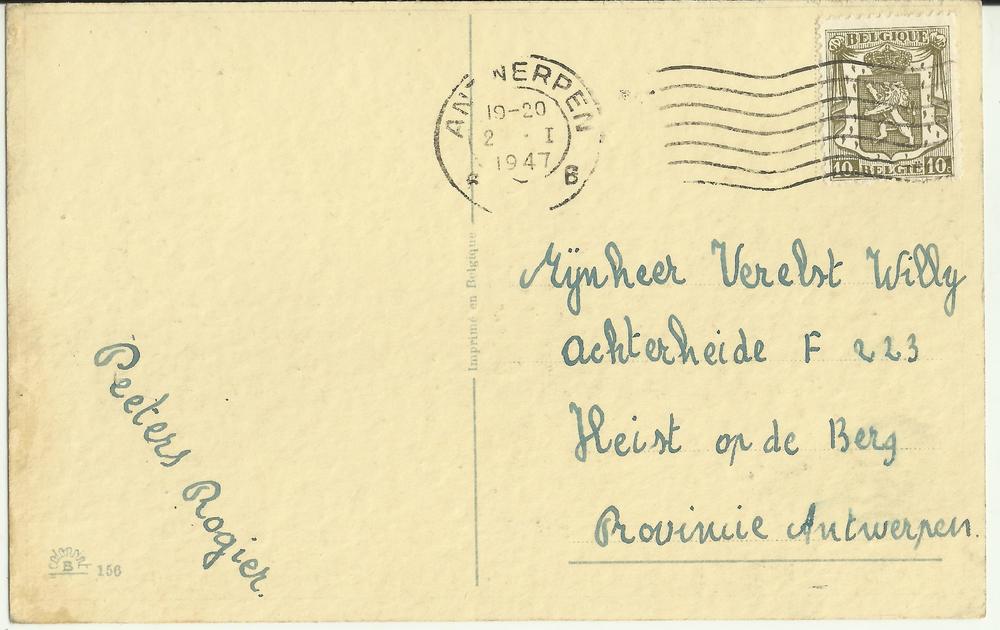 BELGIQUE
10c BELGIË 10c
ANTWERPEN
19-20
2 · I
1947
B
Imprimé en Belgique
Mijnheer Verelst Willy
Achterheide F 223
Heist op de Berg
Provincie Antwerpen.
Peeters Rogier.
B
156